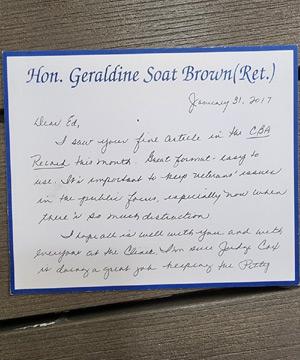 Hon. Geraldine Soat Brown (Ret.)
January 31, 2017
Dear Ed,
I saw your fine article in the CBA
Record this month. Great format - easy to
use. It's important to keep veterans' issues
in the public focus, especially now when
there's so much distraction.
I hope all is well with you and with
everyone at the Clinic. I'm sure Judge Cox
is doing a great job helping the Petty